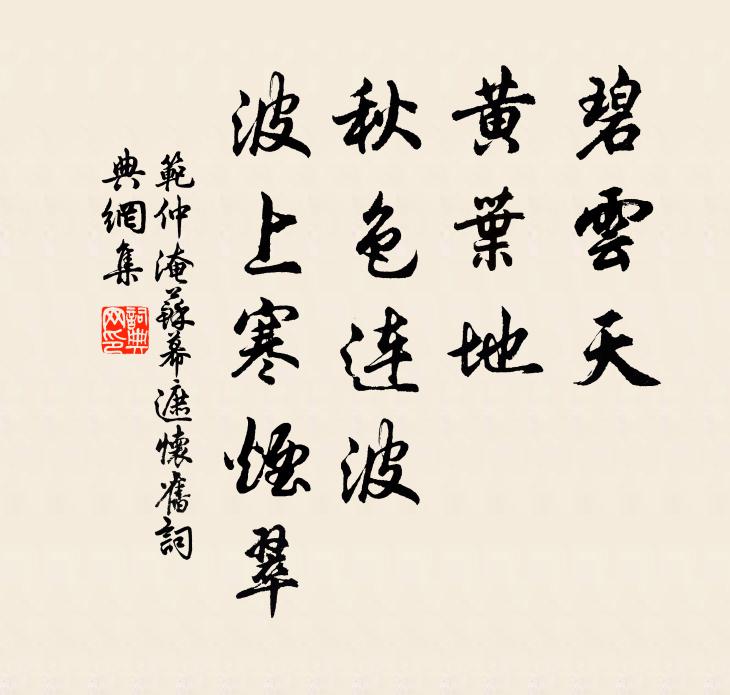 碧雲天
黄葉地
秋色連波
波上寒煙翠
範仲淹蘇幕遮懷舊詞
典網集
詞典网印